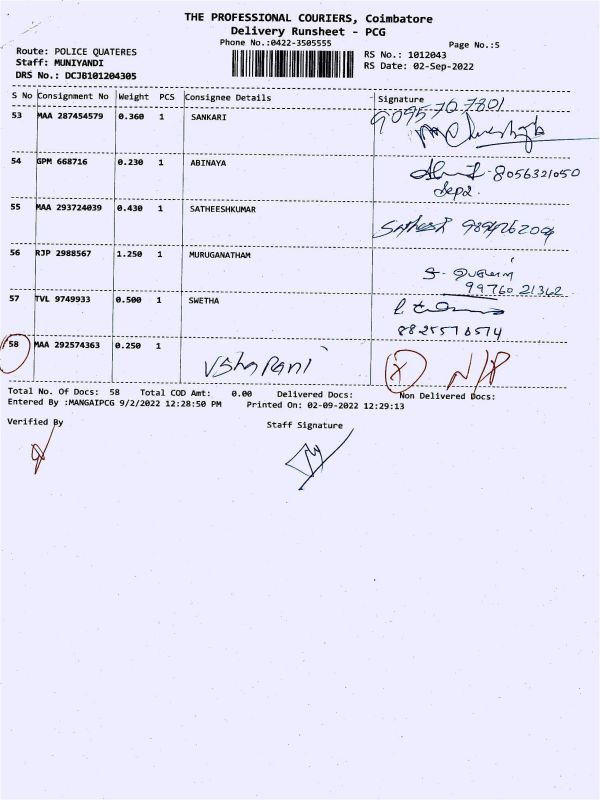 THE PROFESSIONAL COURIERS, Coimbatore
Delivery Runsheet - PCG
Phone No.:0422-3505555
Page No.:5
Route: POLICE QUATERES
Staff: MUNIYANDI
DRS No.: DCJB101204305
RS No.: 1012043
RS Date: 02-Sep-2022
S No Consignment No Weight PCS Consignee Details Signature
53 MAA 287454579 0.360 1 SANKARI 9095707801
54 GPM 668716 0.230 1 ABINAYA 8056321050
55 MAA 293724039 0.430 1 SATHEESHKUMAR
56 RJP 2988567 1.250 1 MURUGANATHAM
9976021362
57 TVL 9749933 0.500 1 SWETHA
8825576574
58 MAA 292574363 0.250 1 X N/P
Total No. Of Docs: 58 Total COD Amt: 0.00 Delivered Docs: Non Delivered Docs:
Entered By :MANGAIPCG 9/2/2022 12:28:50 PM Printed On: 02-09-2022 12:29:13
Verified By Staff Signature